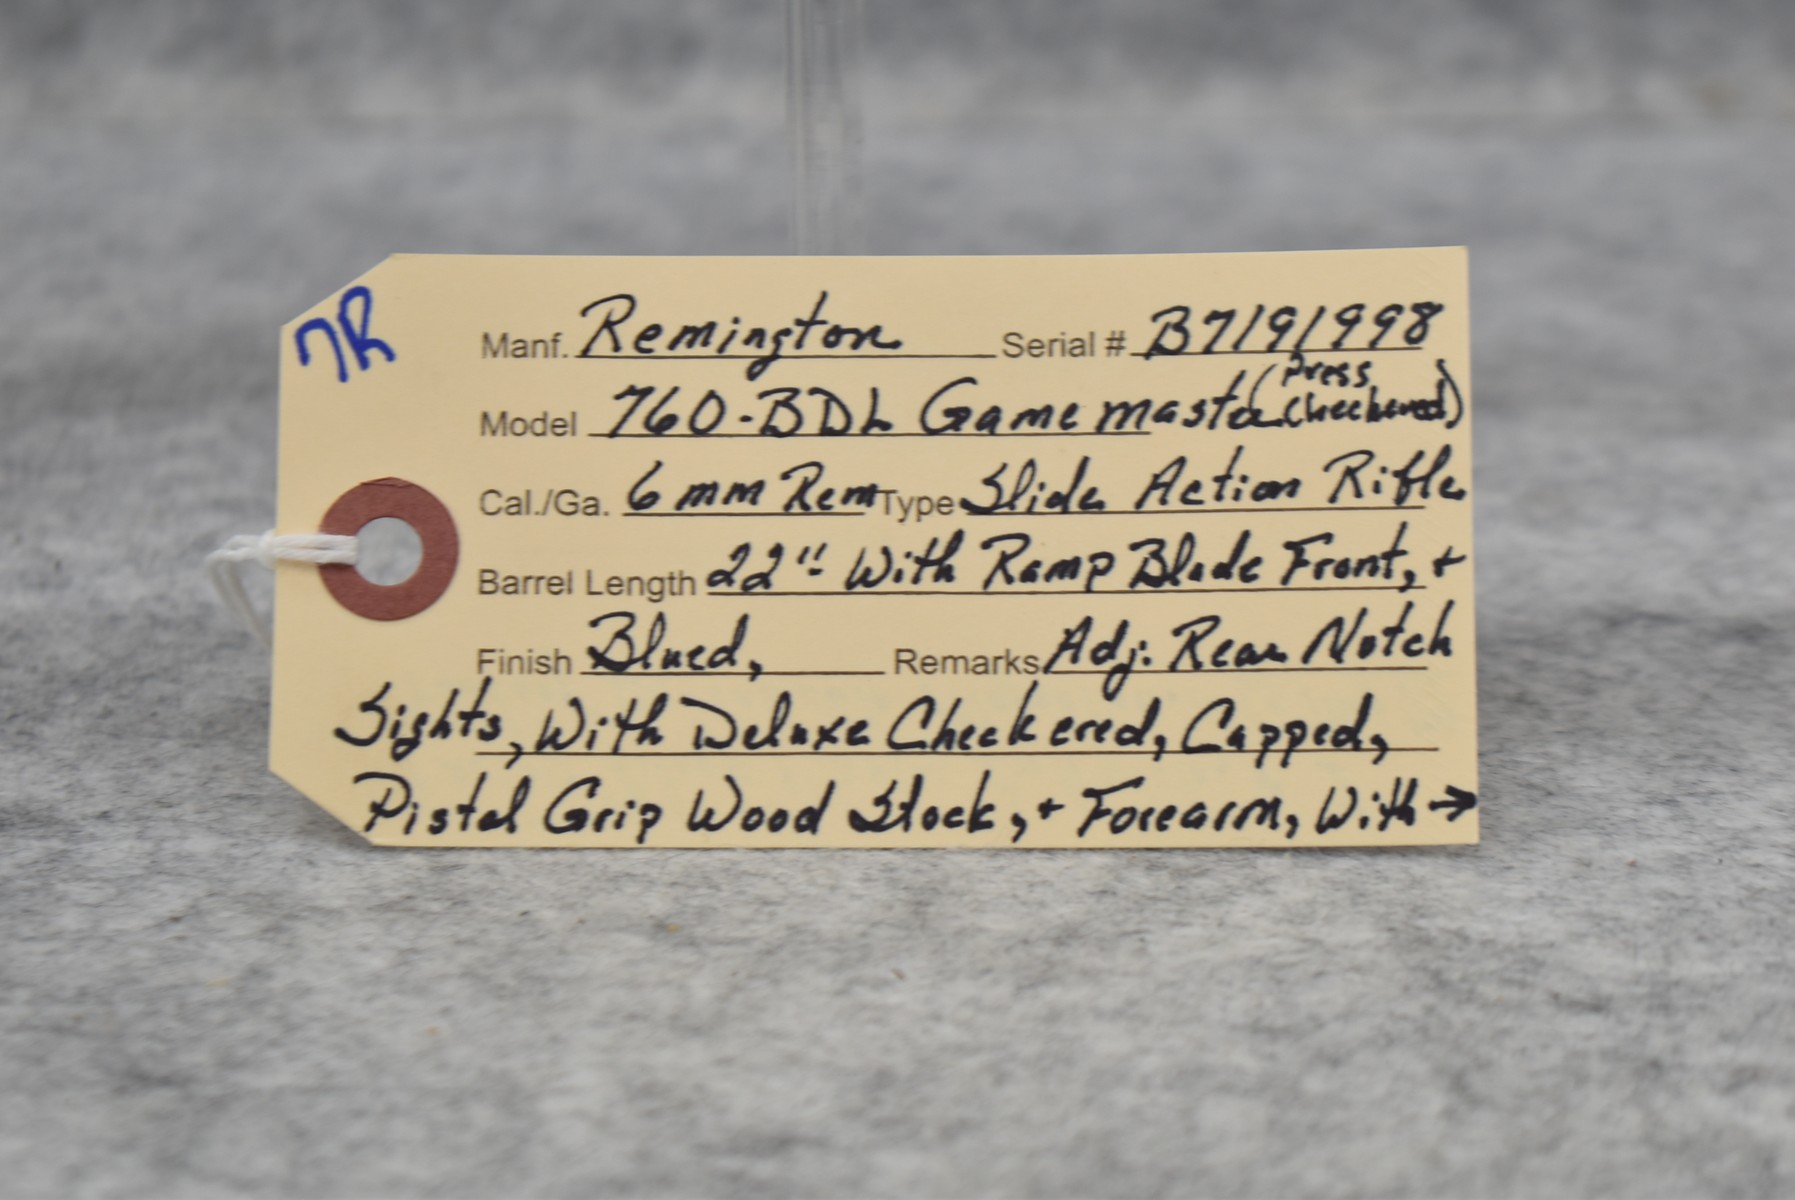 7R
Manf. Remington Serial # B7191998
Model 760-BDL Gamemaster (Press Checkered)
Cal./Ga. 6mm Rem Type Slide Action Rifle
Barrel Length 22" With Ramp Blade Front, +
Finish Blued, Remarks Adj. Rear Notch
Sights, With Deluxe Checkered, Capped,
Pistol Grip Wood Stock, + Forearm, With →